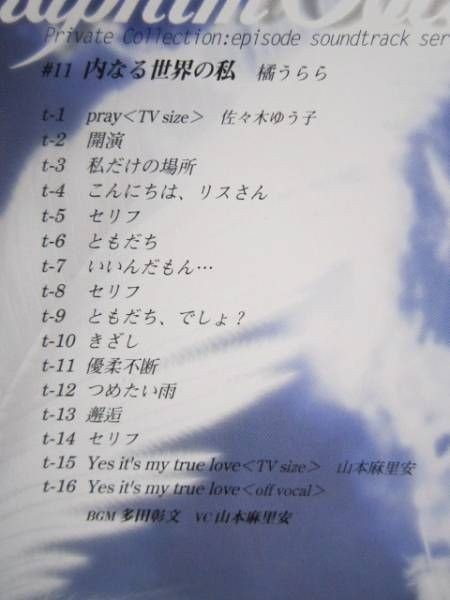 Private Collection:episode soundtrack ser
#11 内なる世界の私 橘うらら
t-1 pray<TV size> 佐々木ゆう子
t-2 開演
t-3 私だけの場所
t-4 こんにちは、リスさん
t-5 セリフ
t-6 ともだち
t-7 いいんだもん…
t-8 セリフ
t-9 ともだち、でしょ?
t-10 きざし
t-11 優柔不断
t-12 つめたい雨
t-13 邂逅
t-14 セリフ
t-15 Yes it's my true love<TV size> 山本麻里安
t-16 Yes it's my true love<off vocal>
BGM 多田彰文 VC 山本麻里安